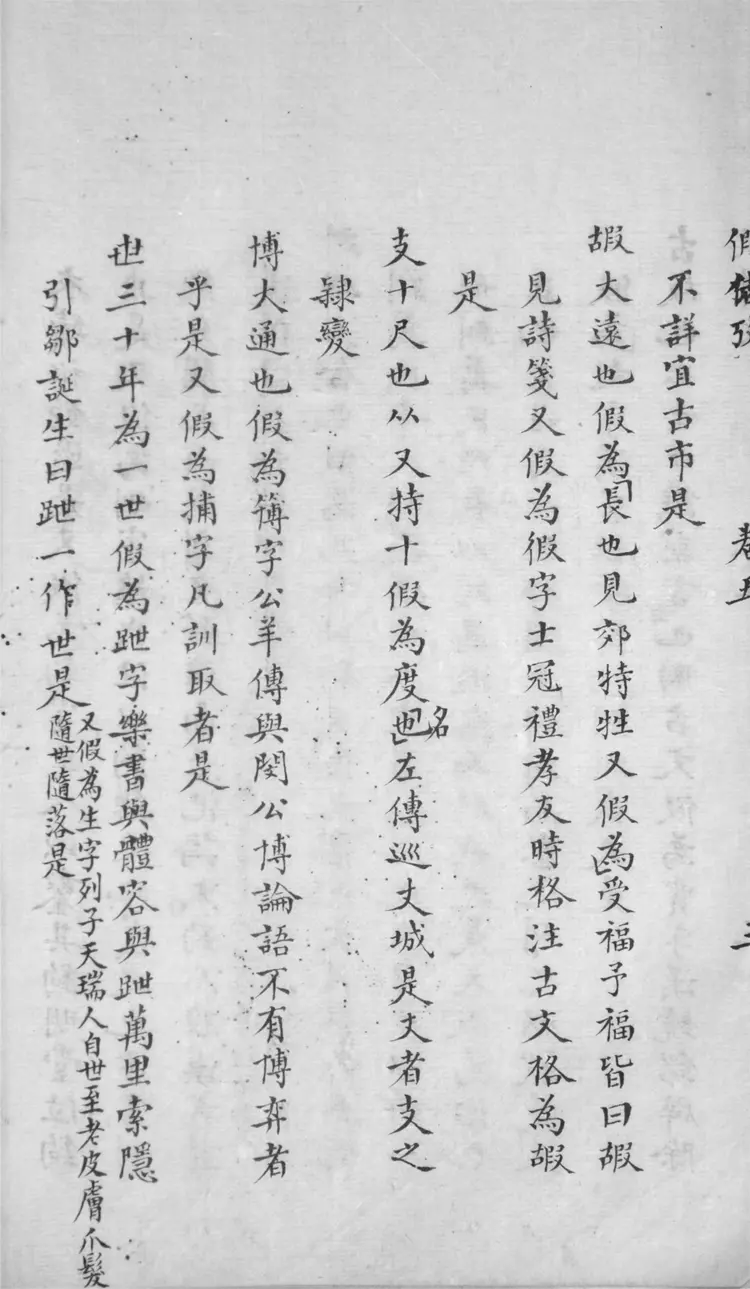 假借 卷五 三
不詳宜古市是
嘏大遠也假為長也見郊特牲又假為受福予福皆曰嘏
見詩箋又假為徦字士冠禮孝友時格注古文格為嘏
是
支十尺也从又持十假為度名也左傳巡丈城是丈者支之
隸變
博大通也假為簙字公羊傳與閔公博論語不有博弈者
乎是又假為捕字凡訓取者是
世三十年為一世假為跇字樂書與體容與跇萬里索隱
引鄒誕生曰跇一作世是又假為生字列子天瑞人自世至老皮膚爪髮
隨世隨落是